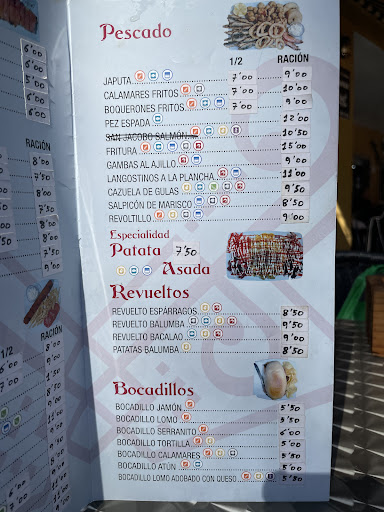 6'00
5'00
6'00
6'00
RACIÓN
8'00
8'00
7'50
8'00
7'50
8'00
8'50
RACIÓN
1/2
Pescado
1/2 RACIÓN
JAPUTA 7'00 9'00
CALAMARES FRITOS 7'00 10'00
BOQUERONES FRITOS 7'00 9'00
PEZ ESPADA 12'00
SAN JACOBO SALMÓN 10'50
FRITURA 15'00
GAMBAS AL AJILLO 9'00
LANGOSTINOS A LA PLANCHA 11'00
CAZUELA DE GULAS 9'50
SALPICÓN DE MARISCO 8'50
REVOLTILLO 9'00
Especialidad
Patata 7'50
Asada
Revueltos
REVUELTO ESPÁRRAGOS 8'50
REVUELTO BALUMBA 9'50
REVUELTO BACALAO 9'00
PATATAS BALUMBA 8'50
Bocadillos
BOCADILLO JAMÓN 5'50
BOCADILLO LOMO 5'50
BOCADILLO SERRANITO 6'00
BOCADILLO TORTILLA 5'00
BOCADILLO CALAMARES 5'50
BOCADILLO ATÚN 5'00
BOCADILLO LOMO ADOBADO CON QUESO 5'50